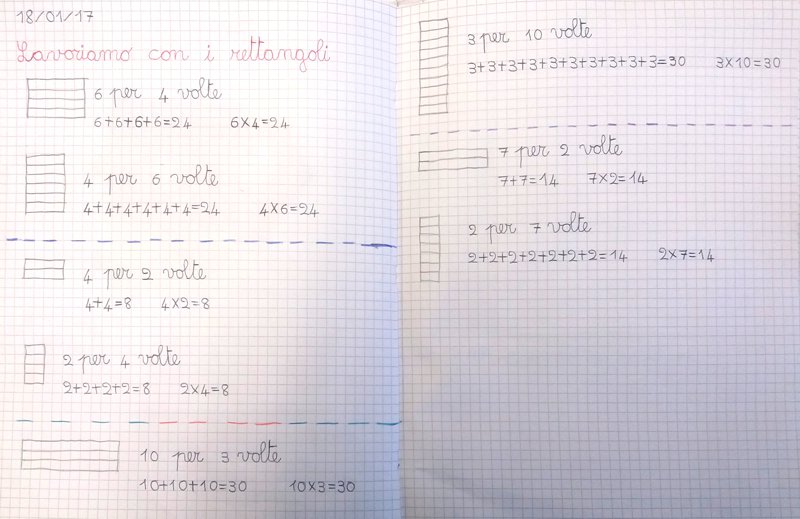 18/01/17
Lavoriamo con i rettangoli
6 per 4 volte
6+6+6+6=24 6×4=24
4 per 6 volte
4+4+4+4+4+4=24 4×6=24
4 per 2 volte
4+4=8 4×2=8
2 per 4 volte
2+2+2+2=8 2×4=8
10 per 3 volte
10+10+10=30 10×3=30
3 per 10 volte
3+3+3+3+3+3+3+3+3+3=30 3×10=30
7 per 2 volte
7+7=14 7×2=14
2 per 7 volte
2+2+2+2+2+2+2=14 2×7=14